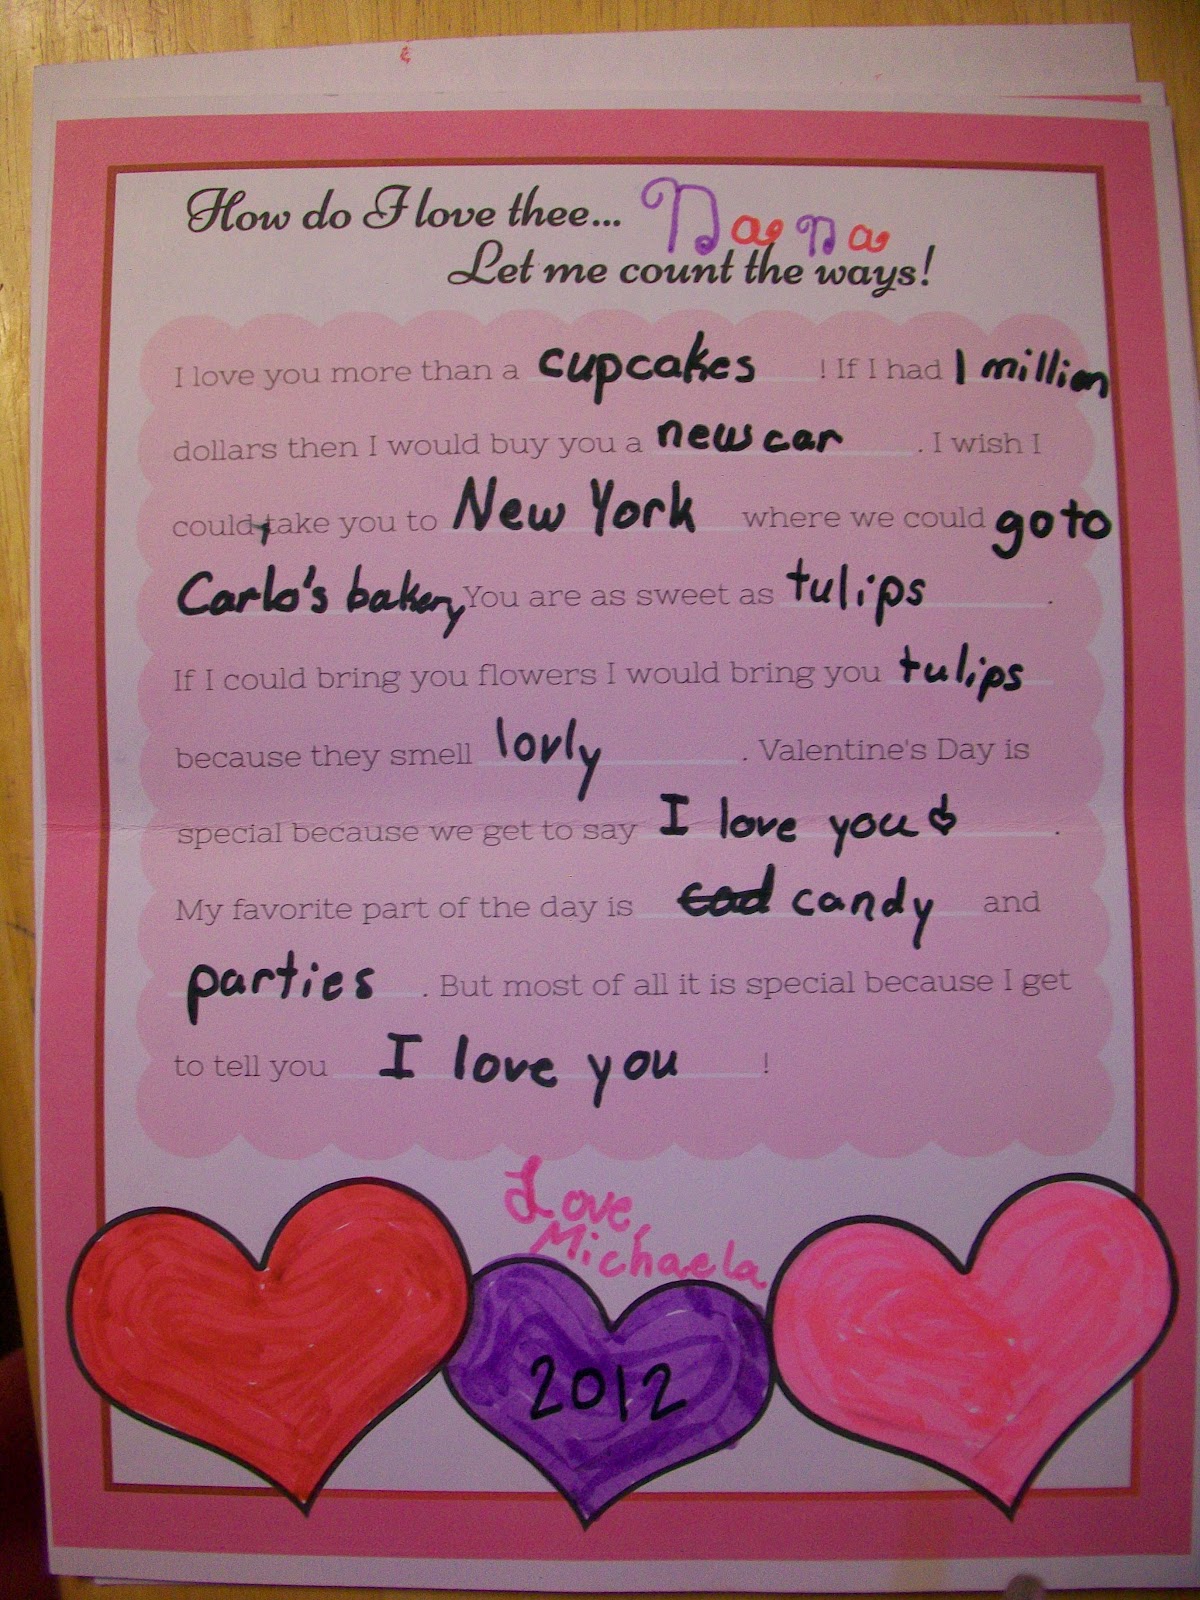 How do I love thee... Nana
Let me count the ways!
I love you more than a cupcakes ! If I had 1 million
dollars then I would buy you a new car . I wish I
could, take you to New York where we could go to
Carlo's bakery You are as sweet as tulips .
If I could bring you flowers I would bring you tulips
because they smell lovly . Valentine's Day is
special because we get to say I love you .
My favorite part of the day is cad candy and
parties . But most of all it is special because I get
to tell you I love you !
Love,
Michaela
2012